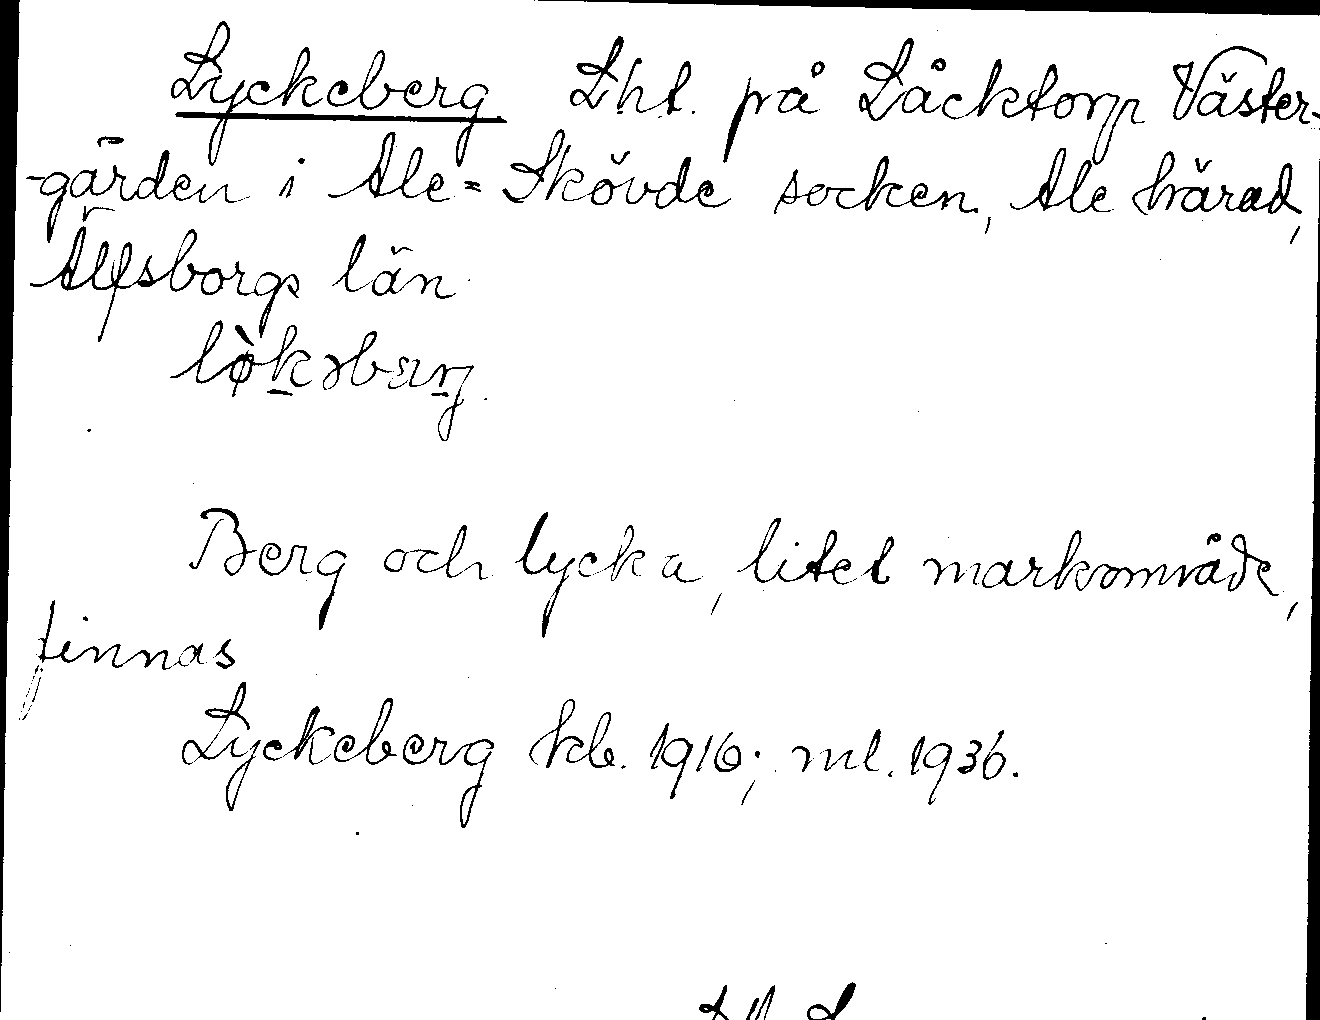 Lyckeberg Lht. på Låcktorp Väster-
-gården i Ale-Skövde socken, Ale härad,
Älfsborgs län
Berg och lycka, litet markområde,
finnas
Lyckeberg kb. 1916; ml. 1936.